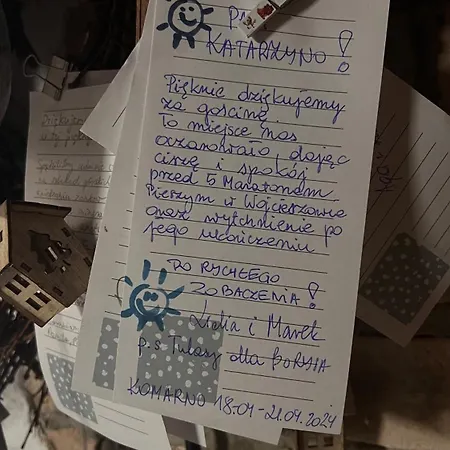 KATARZYNO!
Pięknie dziękujemy
za gościnę.
To miejsce nas
oczarowało, dając
ciszę i spokój
przed 5 Maratonem
Pieszym w Wojcieszowie
oraz wytchnienie po
jego ukończeniu
DO RYCHŁEGO
ZOBACZENIA!
Lidia i Marek
p.s Tulasy dla BORYSA
KOMARNO 18.04-21.04.2024